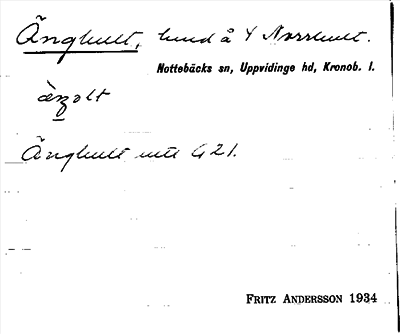 Änghult, hund å Y Norrhult.
Nottebäcks sn, Uppvidinge hd, Kronob. l.
Änghult mtl G21.
FRITZ ANDERSSON 1934